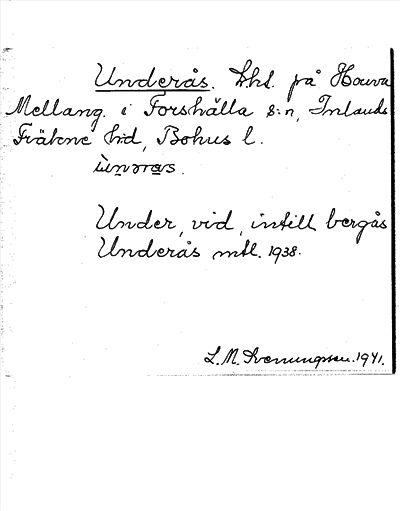 Underås. Lhl. på Houva
Mellang. i Forshälla s:n, Inlands
Fräkne h:d, Bohus l.
Under, vid, intill bergås
Underås mtl. 1938.
L. M. Svenungsson. 1941.